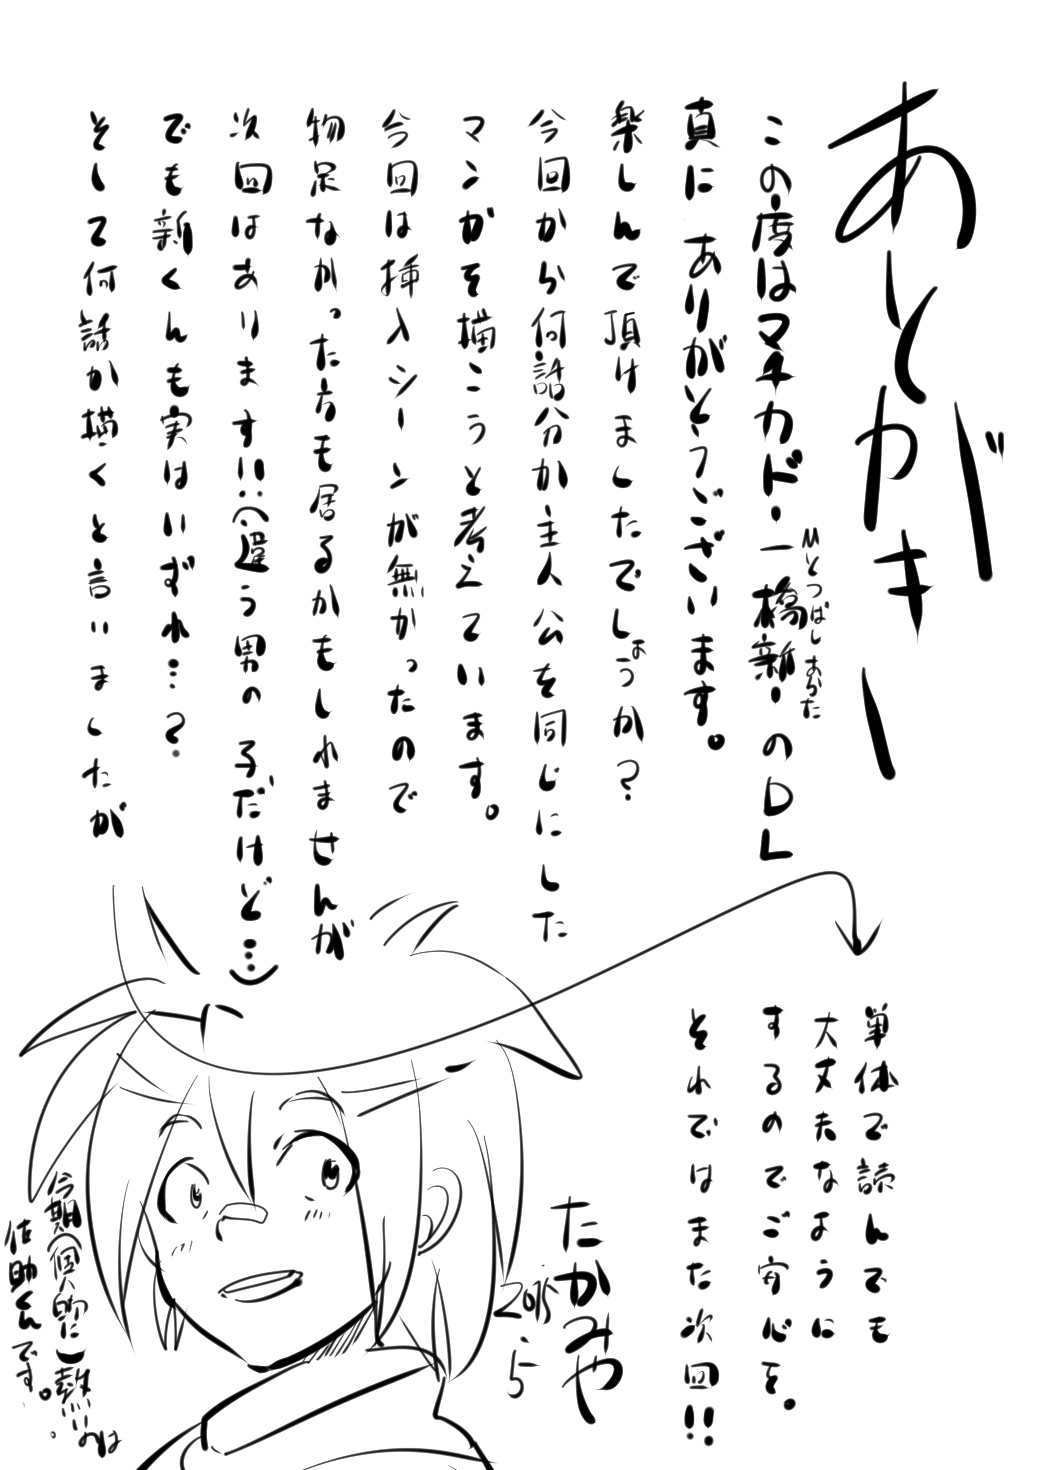 あとがきー
この度はマチカド・一橋新・のDL
ひとつばし あらた
真にありがとうございます。
楽しんで頂けましたでしょうか?
今回から何話分か主人公を同じにした
マンガを描こうと考えています。
今回は挿入シーンが無かったので
物足なかった方も居るかもしれませんが
次回はありますよ!!…(違う男の子だけど…)
でも新くんも実はいずれ…?
そして何話か描くと言いましたが
単体で読んでも
大丈夫なように
するのでご安心を。
それではまた次回!!
たかみや
2015.5
今期(個人的に)熱いのは
佐助くんです。